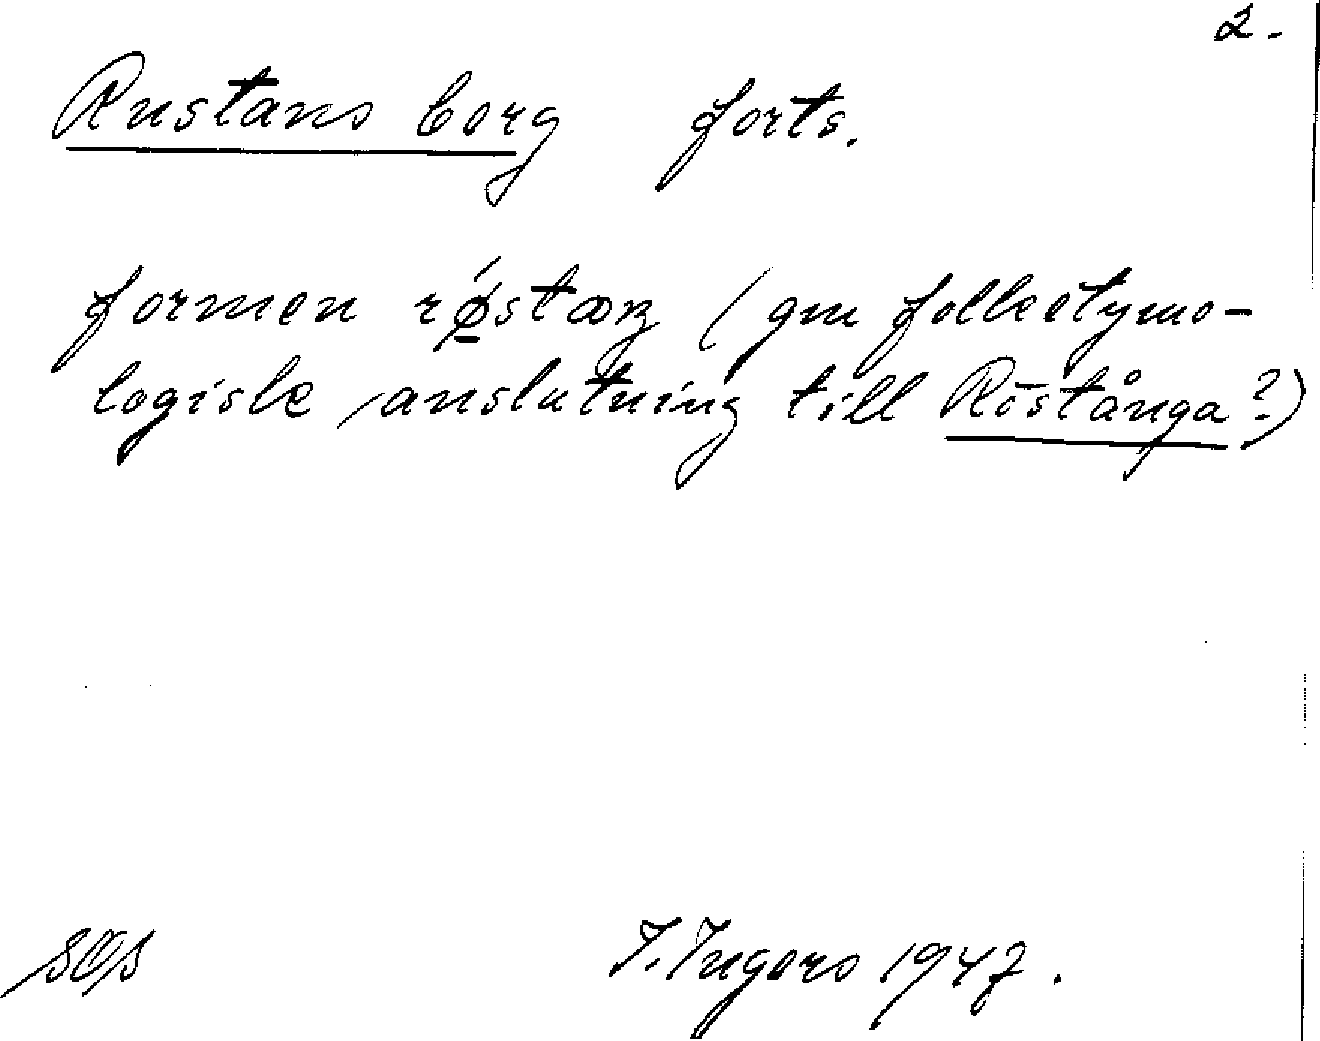 2.
Rustans borg forts.
formen (gm folketymo-
logisk anslutning till Röstånga?)
I. Ingers 1947.